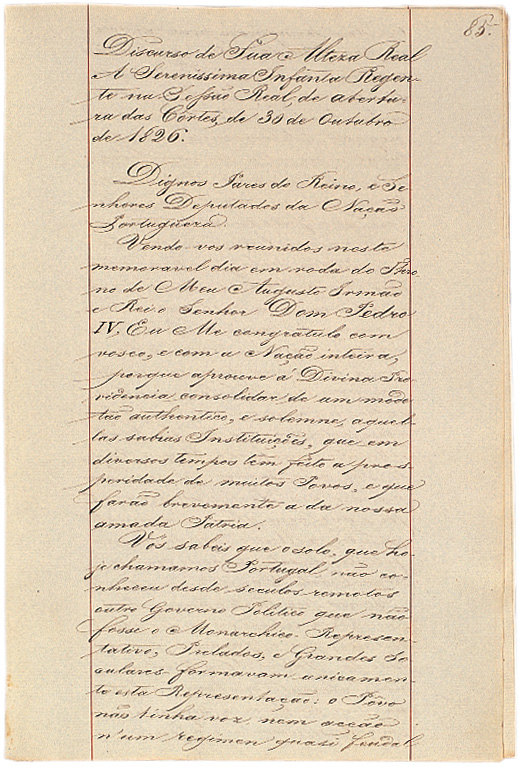 85.
Discurso de Sua Alteza Real
A Serenissima Infanta Regen-
te na Sessão Real, de abertu-
ra das Côrtes, de 30 de Outubro
de 1826.
Dignos Pares do Reino, e Se-
nhores Deputados da Nação
Portugueza.
Vendo-vos reunidos neste
memoravel dia em roda do Thro-
no de Meu Augusto Irmão
e Rei o Senhor Dom Pedro
IV, Eu Me congratulo com
vosco, e com a Nação inteira,
porque aprouve á Divina Pro-
videncia consolidar, de um modo
tão authentico, e solemne, aquel-
las sabias Instituições, que em
diversos tempos têm feito a pros-
peridade de muitos Povos, e que
farão brevemente a da nossa
amada Patria.
Vós sabeis que o solo, que ho-
je chamamos Portugal, não co-
nheceu desde seculos remotos
outro Governo Politico que não
fosse o Monarchico-Represen-
tativo, Prelados, e Grandes Se-
culares formavam unicamen-
te esta Representação: o Povo
não tinha voz, nem acção
n'um regimen quasi feudal